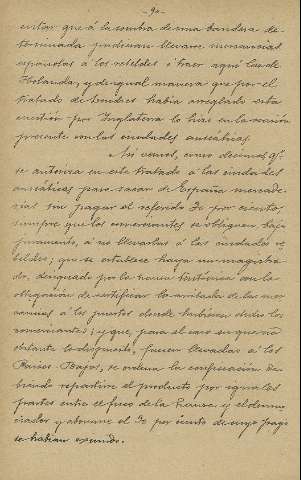 - 90 -
evitar que á la sombra de una bandera de-
terminada pudieran llevarse mercancias
españolas á los rebeldes ó traer aquí las de
Holanda, y de igual manera que por el
tratado de Londres había arreglado esta
cuestión por Inglaterra lo hizo en la ocasión
presente con las ciudades anseáticas.
Así vemos, como decimos, qe.
se autoriza en este tratado á las ciudades
anseáticas para sacar de España mercade-
rías sin pagar el referido 30 por ciento,
siempre que los comerciantes se obliguen bajo
juramento, á no llevarlas á las ciudades re-
beldes; que se establece haya un magistra-
do, designado por la hansa teutónica con la
obligación de certificar la arribada de las mer-
cancias á los puertos donde habían dicho los
comerciantes; y que, para el caso en que no
obstante lo dispuesto, fuesen llevadas á los
Paises-Bajos, se ordena la confiscación de-
biendo repartirse el producto por iguales
partes entre el fisco de la hansa y el denun-
ciador y abonarse el 30 por ciento de cuyo pago
se habian eximido.